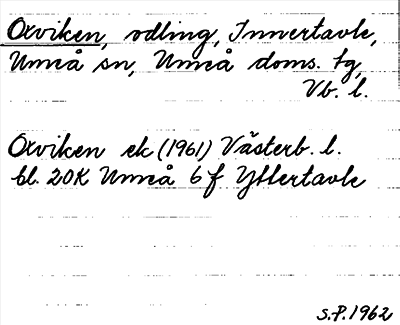 Oxviken, odling, Innertavle,
Umeå sn, Umeå doms. tg,
Vb. l.
Oxviken ek (1961) Västerb. l.
bl. 20K Umeå 6f Yttertavle
S.P. 1962